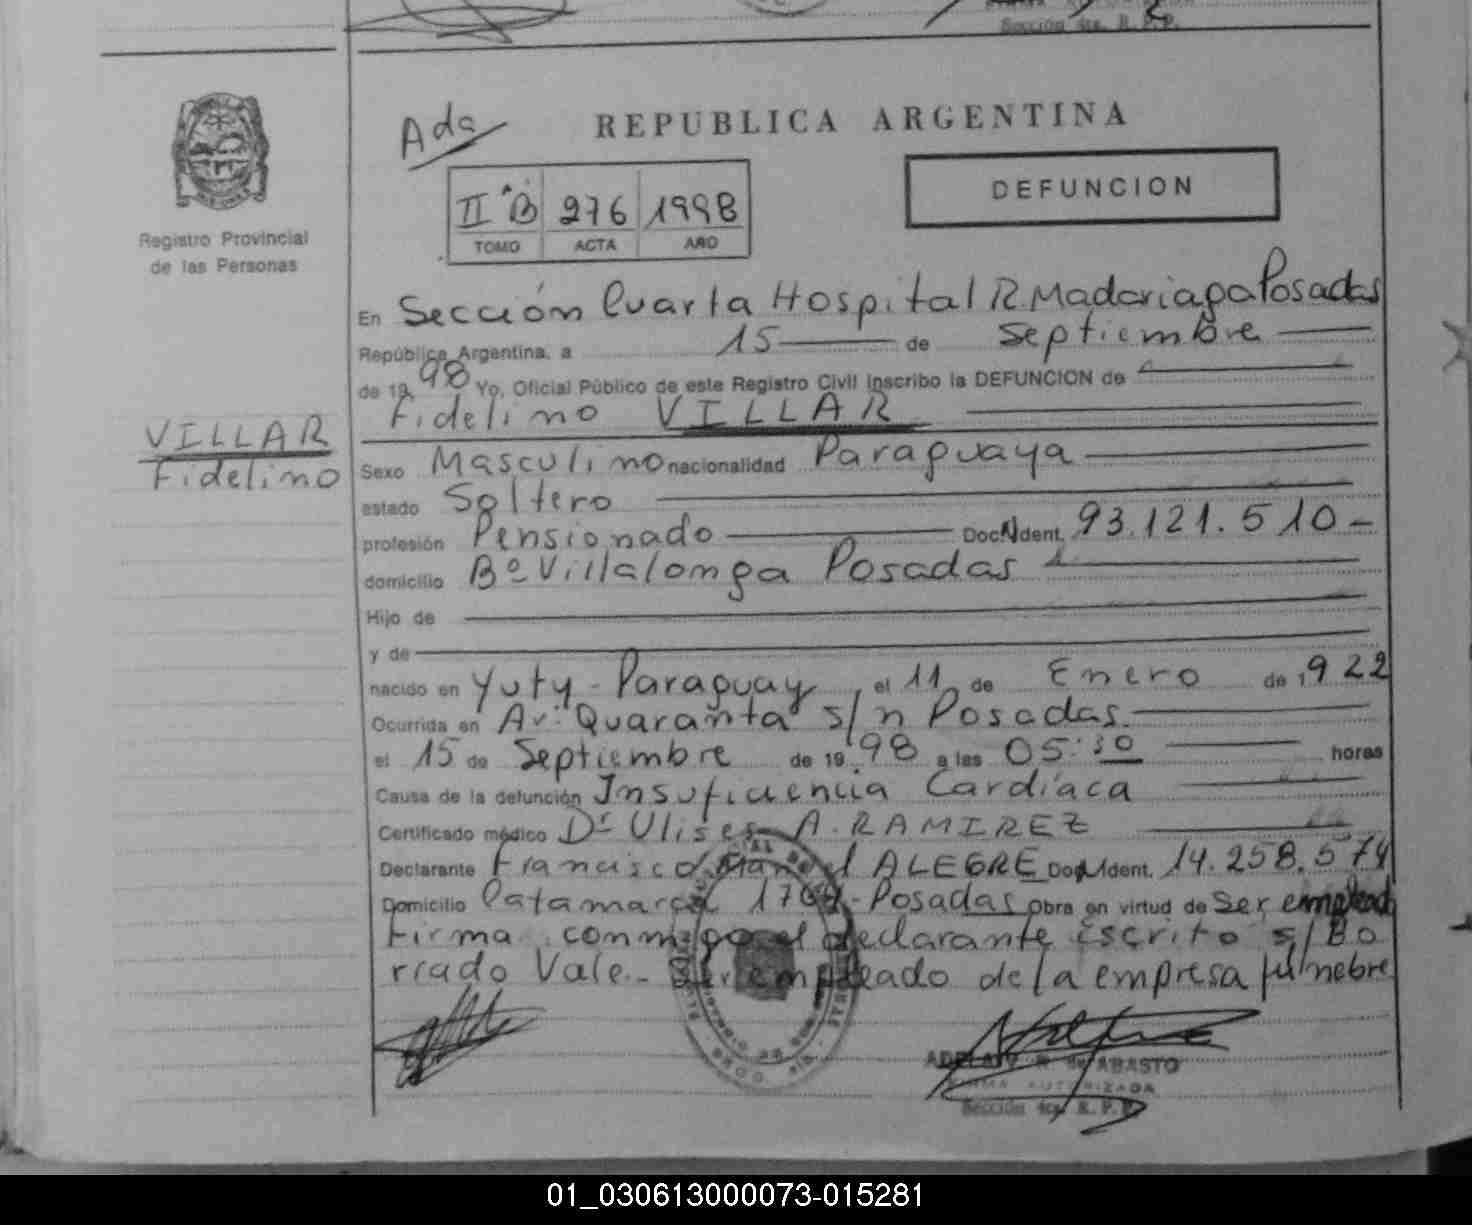 Sección 4ta. R. P. P.
Ada
REPUBLICA ARGENTINA
II "B 276 1998
TOMO ACTA AÑO
DEFUNCION
Registro Provincial
de las Personas
En Sección Cuarta Hospital R. Madariaga Posadas
República Argentina, a 15 de Septiembre
de 19 98 Yo, Oficial Público de este Registro Civil inscribo la DEFUNCION de
Fidelino VILLAR
VILLAR
Fidelino
Sexo Masculino nacionalidad Paraguaya
estado Soltero
profesión Pensionado Doc. Ident. 93.121.510-
domicilio Bº Villalonga Posadas
Hijo de
y de
nacido en Yuty-Paraguay, el 11 de Enero de 1922
Ocurrida en Av. Quaranta s/n Posadas.
el 15 de Septiembre de 19 98 a las 05:30 horas
Causa de la defunción Insuficiencia Cardíaca
Certificado médico Dr Ulises A. RAMIREZ
Declarante Francisco Manuel ALEGRE Doc. Ident. 14.258.574
Domicilio Catamarca Posadas Obra en virtud de Ser empleado
Firma conmigo el declarante Escrito s/Bo
rrado Vale.- Ser empleado de la empresa fúnebre
R. de ABASTO
FIRMA AUTORIZADA
Sección 4ta. R. P. P.
01_030613000073-015281